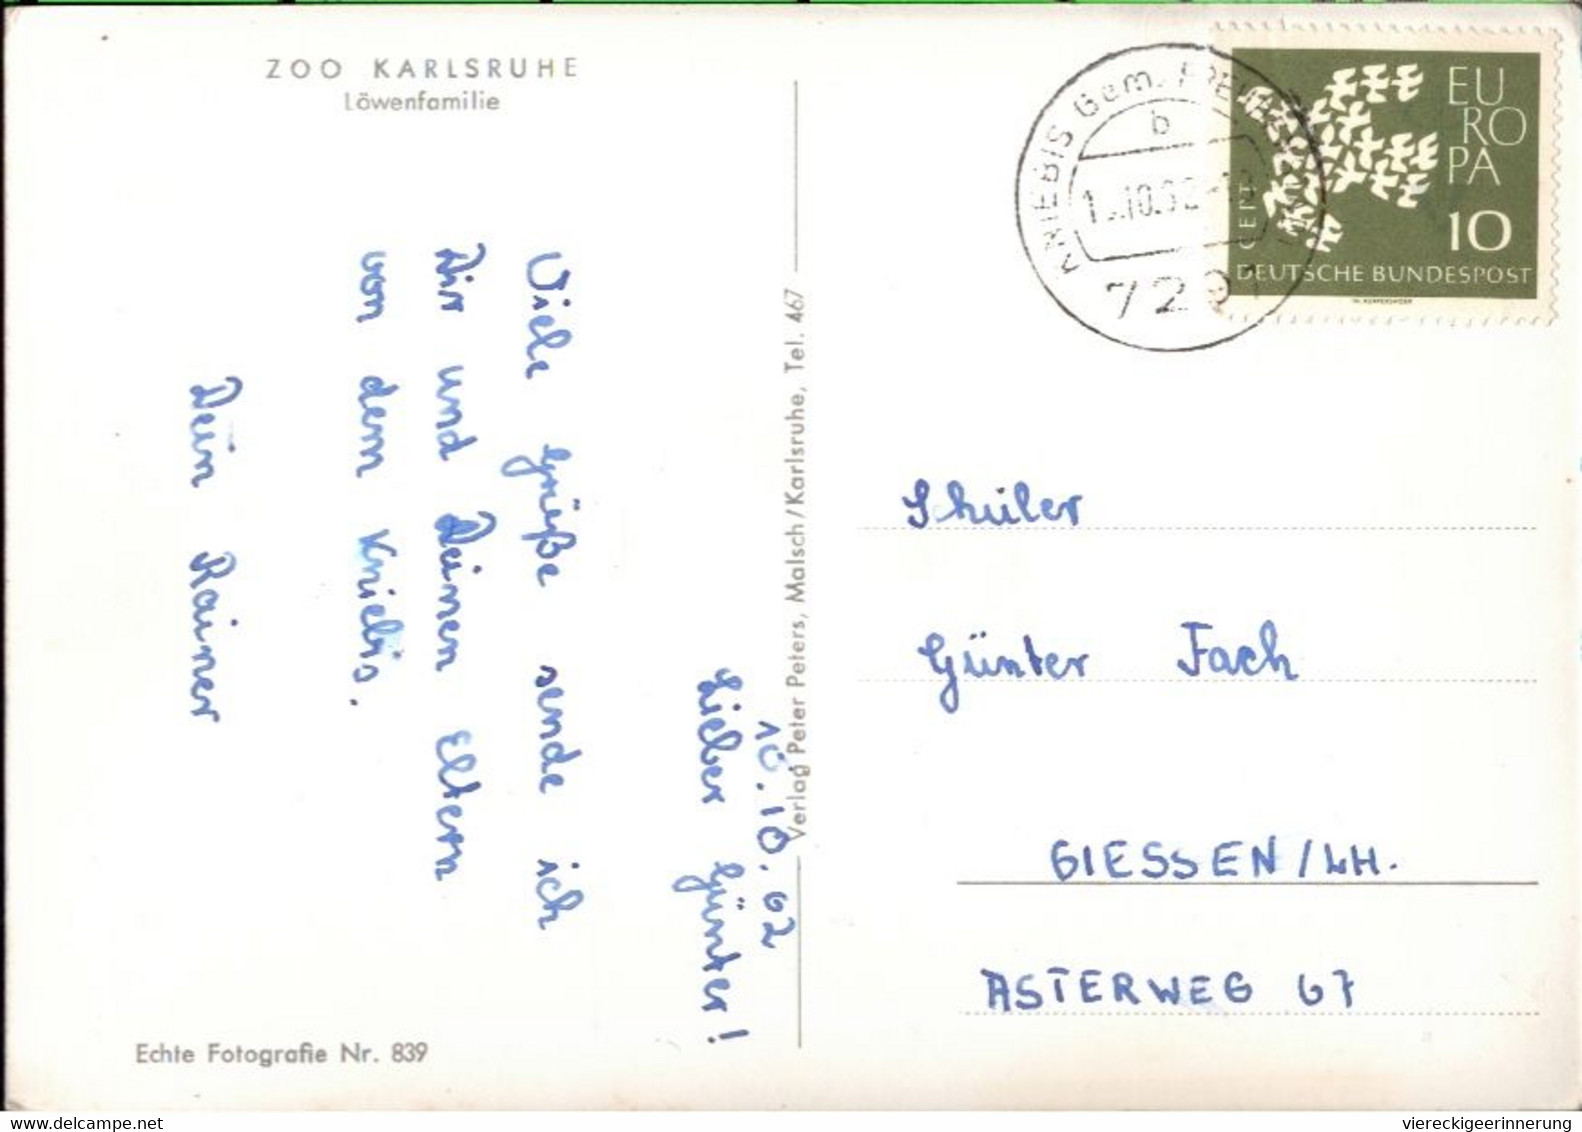 ZOO KARLSRUHE
Löwenfamilie
10.10.62
Lieber Günter!
Viele Grüße sende ich
Dir und Deinen Eltern
von dem Kniebis.
Dein Rainer
Echte Fotografie Nr. 839
Verlag Peter Peters, Malsch/Karlsruhe, Tel. 467
KNIEBIS Gem.
b
10.62
729
EU
RO
PA
CEPT
10
DEUTSCHE BUNDESPOST
Schüler
Günter Fach
GIESSEN/LH.
ASTERWEG 67
viereckigeerinnerung